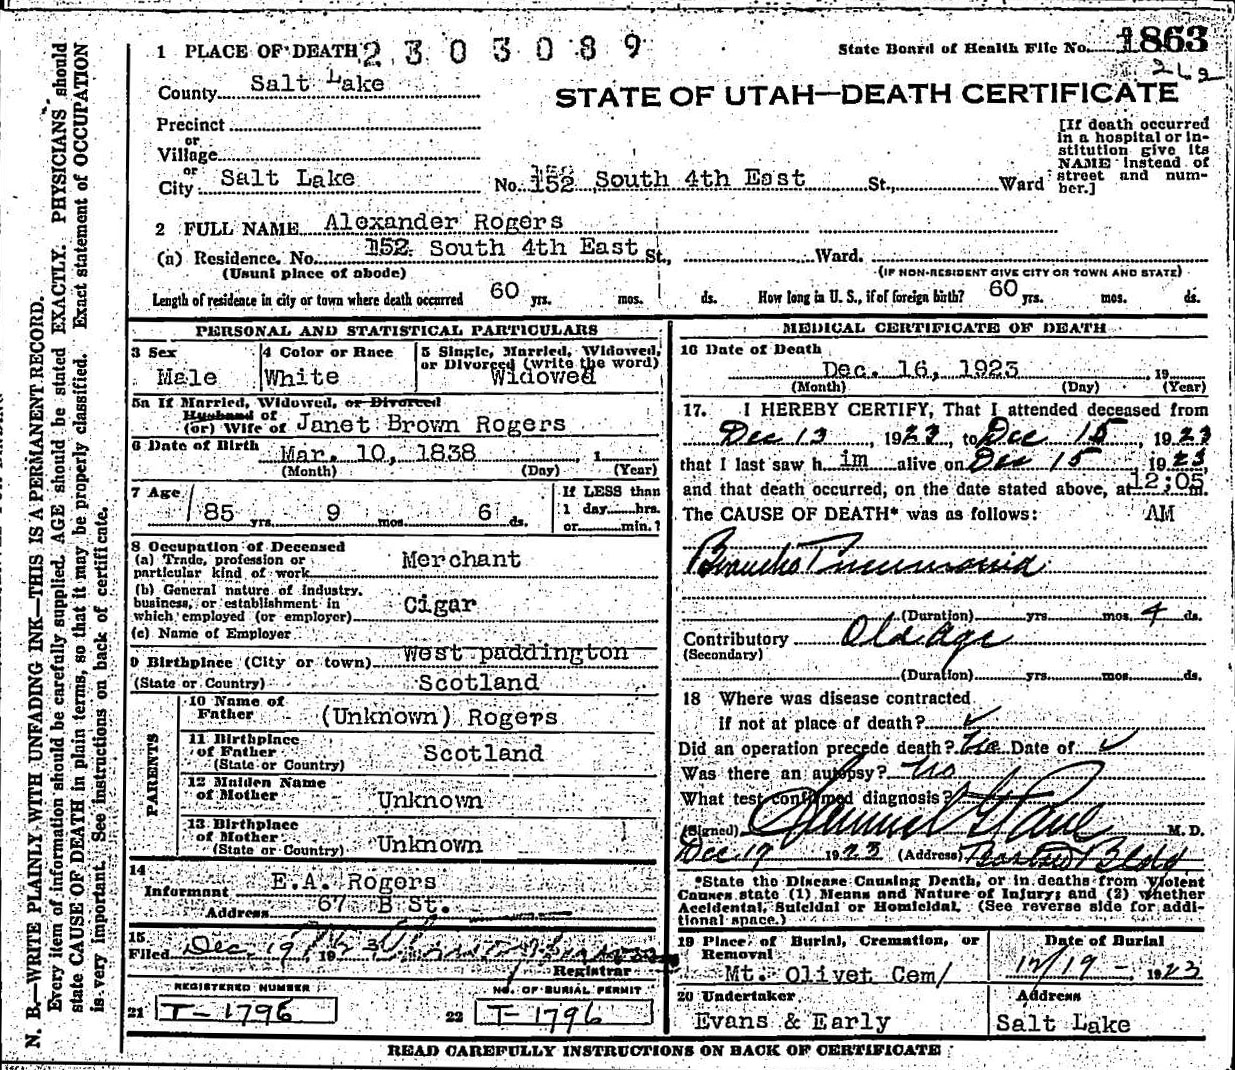 1 PLACE OF DEATH 2303089
State Board of Health File No. 1863
262
County Salt Lake
STATE OF UTAH—DEATH CERTIFICATE
Precinct
or
Village
or
City Salt Lake No. 152 South 4th East St., Ward
[If death occurred
in a hospital or in-
stitution give its
NAME instead of
street and num-
ber.]
2 FULL NAME Alexander Rogers
(a) Residence. No. 152 South 4th East St., Ward.
(Usual place of abode) (IF NON-RESIDENT GIVE CITY OR TOWN AND STATE)
Length of residence in city or town where death occurred 60 yrs. mos. ds. How long in U. S., if of foreign birth? 60 yrs. mos. ds.
PERSONAL AND STATISTICAL PARTICULARS
3 Sex
Male
4 Color or Race
White
5 Single, Married, Widowed,
or Divorced (write the word)
Widowed
5a If Married, Widowed, or Divorced
Husband of
(or) Wife of Janet Brown Rogers
6 Date of Birth
Mar. 10, 1838 , 1
(Month) (Day) (Year)
7 Age
85 yrs. 9 mos. 6 ds.
If LESS than
1 day hrs.
or min.?
8 Occupation of Deceased
(a) Trade, profession or
particular kind of work Merchant
(b) General nature of industry,
business, or establishment in
which employed (or employer) Cigar
(c) Name of Employer
9 Birthplace (City or town) West paddington
(State or Country) Scotland
PARENTS
10 Name of
Father (Unknown) Rogers
11 Birthplace
of Father
(State or Country) Scotland
12 Maiden Name
of Mother Unknown
13 Birthplace
of Mother
(State or Country) Unknown
14
Informant E.A. Rogers
Address 67 B St.
15
Filed Dec. 19, 1923
Registrar
REGISTERED NUMBER
21 T-1796
NO. OF BURIAL PERMIT
22 T-1796
MEDICAL CERTIFICATE OF DEATH
16 Date of Death
Dec. 16, 1923 19
(Month) (Day) (Year)
17. I HEREBY CERTIFY, That I attended deceased from
Dec 13, 1923, to Dec 15, 1923
that I last saw him alive on Dec 15, 1923,
and that death occurred, on the date stated above, at 12:05 m.
The CAUSE OF DEATH* was as follows: AM
Broncho Pneumonia
(Duration) yrs. mos. 4 ds.
Contributory Old Age
(Secondary)
(Duration) yrs. mos. ds.
18 Where was disease contracted
if not at place of death? ✓
Did an operation precede death? No Date of ✓
Was there an autopsy? No
What test confirmed diagnosis?
(Signed) Samuel G Paul M. D.
Dec 17 1923 (Address) Boston Bldg
*State the Disease Causing Death, or in deaths from Violent
Causes state (1) Means and Nature of Injury; and (2) whether
Accidental, Suicidal or Homicidal. (See reverse side for addi-
tional space.)
19 Place of Burial, Cremation, or
Removal
Mt. Olivet Cem/
Date of Burial
12/19 - 1923
20 Undertaker
Evans & Early
Address
Salt Lake
READ CAREFULLY INSTRUCTIONS ON BACK OF CERTIFICATE
N. B.—WRITE PLAINLY WITH UNFADING INK—THIS IS A PERMANENT RECORD.
Every item of information should be carefully supplied. AGE should be stated EXACTLY. PHYSICIANS should
state CAUSE OF DEATH in plain terms, so that it may be properly classified. Exact statement of OCCUPATION
is very important. See instructions on back of certificate.